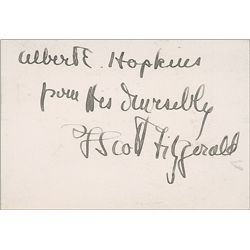 Albert E. Hopkins
from his
F Scott Fitzgerald